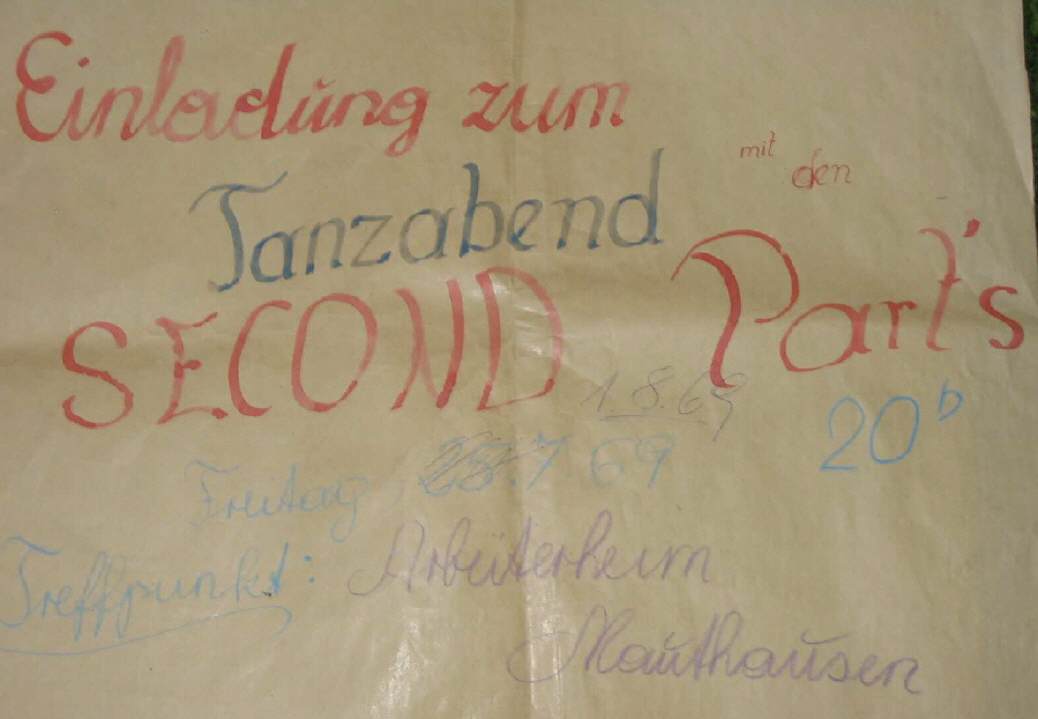 Einladung zum
Tanzabend mit den
SECOND Part's
1.8.69
20h
Freitag, 28.7 69
Treffpunkt: Arbeiterheim
Mauthausen